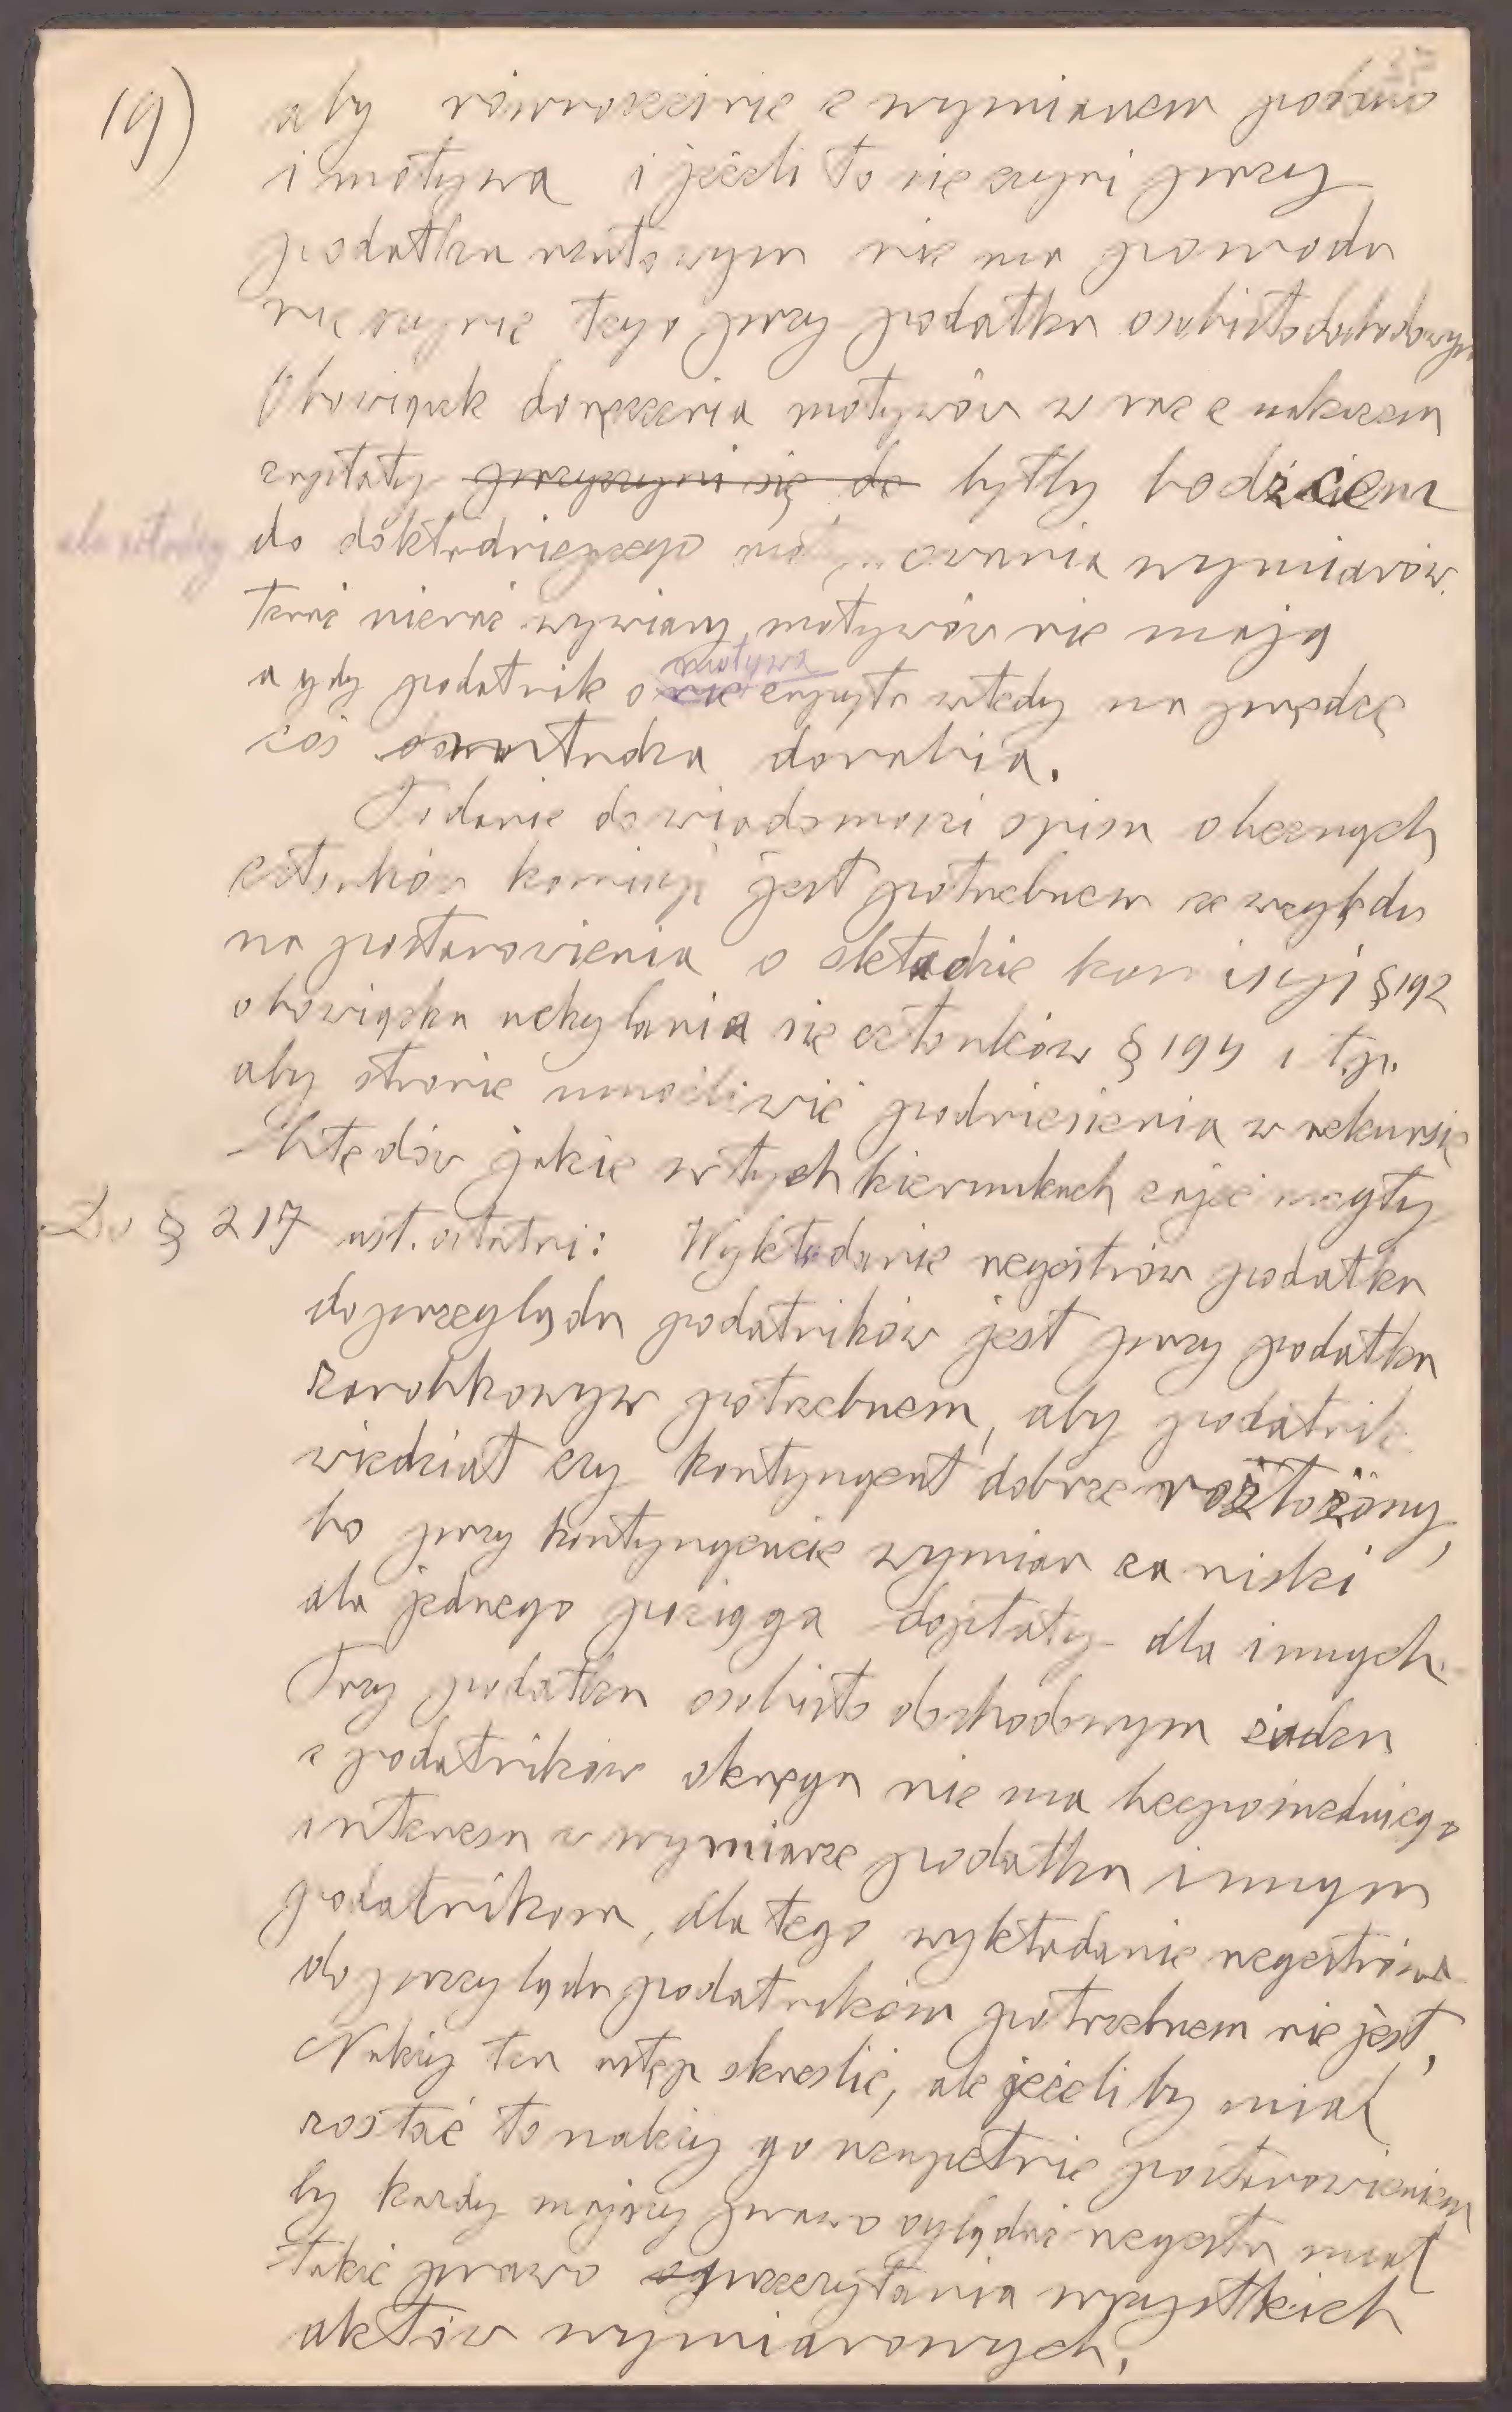 37
19) aby równocześnie z wymiarem podano
i motywa i jeżeli to się czyni przy
podatku rentowym nie ma powodu
nie czynić tego przy podatku osobistodochodowym
Obowiązek doręczenia motywów w raz z nakazem
zapłaty przyczyni się do byłby bodźcem
dla władzy do dokładniejszego motywowania wymiarów.
teraz nieraz wymiary motywów nie mają
a gdy podatnik o nie motywa zapyta wtedy na prędce
coś władza dorabia.
Podanie do wiadomości spisu obecnych
członków komisyi jest potrzebnem ze względu
na postanowienia o składzie komisyi § 192
obowiązku uchylania się członków § 194 i t.p.
aby stronie umożliwić podniesienia w rekursie
błędów jakie w tych kierunkach zajść mogły
Do § 217 ust. ostatni: Wykładanie regestrów podatku
do przeglądu podatników jest przy podatku
zarobkowym potrzebnem, aby podatnik
wiedział czy kontyngent dobrze rozłożony,
bo przy kontyngencie wymiar za niski
dla jednego pociąga dopłaty dla innych.
Przy podatku osobisto dochodowym żaden
z podatników okręgu nie ma bezpośredniego
interesu w wymiarze podatku innym
podatnikom, dla tego wykładanie regestrów
do przeglądu podatnikom potrzebnem nie jest,
Należy ten ustęp skreślić, ale jeżeli by miał
zostać to należy go uzupełnić postanowieniem
by każdy mający prawo oglądać regestra miał
także prawo przeczytania wszystkich
aktów wymiarowych.